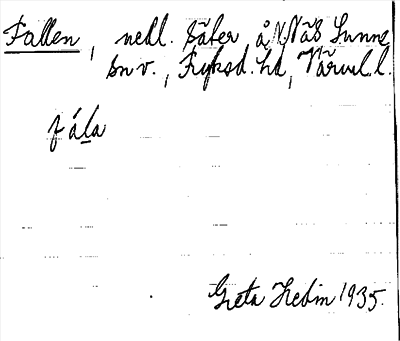 Fallen, nedl. säter å N. Näs Sunne
sn v., Fryksd. hd, Värml. l.
fála
Greta Hedin 1935.